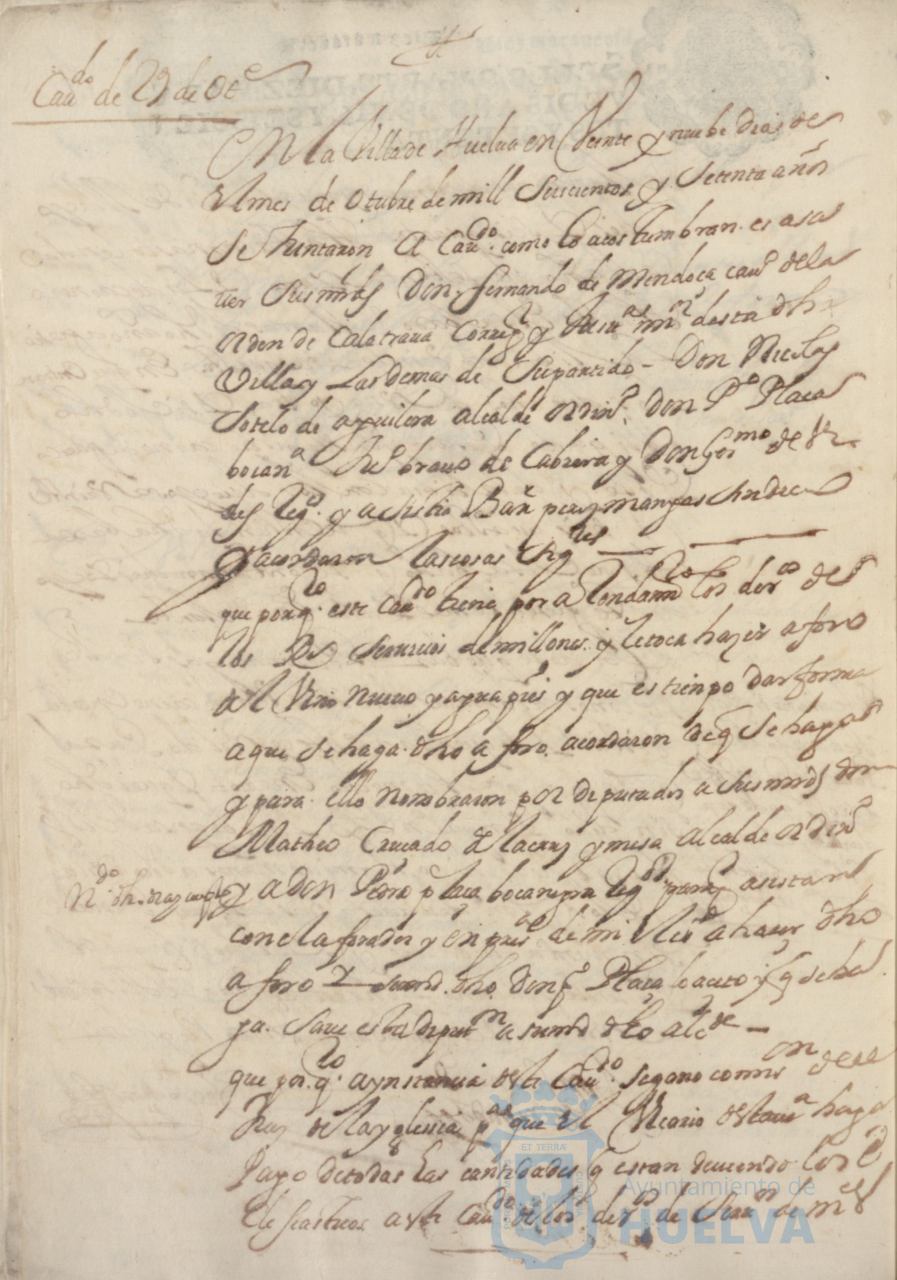 Cavdo de 29 de Ote
En la Villa de Huelva en Veinte y nuebe dias de
el mes de Otubre de mill Seiscientos y Setenta años
Se Juntaron a Cavdo. como lo acostumbran es a sa
uer Sus mrds Don fernando de Mendoca cauo de la
orden de Calatraua Corregr y Justa mr desta dha
Villa y Las demas de Su partido - Don Nicolas
Sotelo de aguilera alcalde ordino. Don Po Placa
bocana Juo brauo de Cabrera y Don Germo de
des Rego. y a Sisttio Bar perez manjas Sindico
y acordaron las cosas Sigtes
que por qto. este Cavdo tiene por a Rendamto los deros de
los Rs Seruicios de millones. y le toca hazer aforo
del Vino nueuo y agua pies y que es tienpo dar forma
a que Se haga. dho aforo. acordaron de q Se haga
y para ello nonbraron por diputados a Sus mrds don
Matheo Crucado de la cruz y mesa alcalde ordino
y a don Pedro placa bocanegra Regor para q asistan
con el aforador y en preso de mi el esno a hacer dho
aforo Y Sumd. dho. Don po Placa lo aceto y q Se ha
ga. Saue esta diputon a Sumd dho alcde
que por qto. a ynstancia deste Cavdo. Se gano comison del
Juez de la yglesia pa que el Vicario desta va haga
Pago de todas las cantidades q estan deuiendo los E
clesiasticos a este Cavdo de los deros de Seruo de mes
Ayuntamiento de
HUELVA